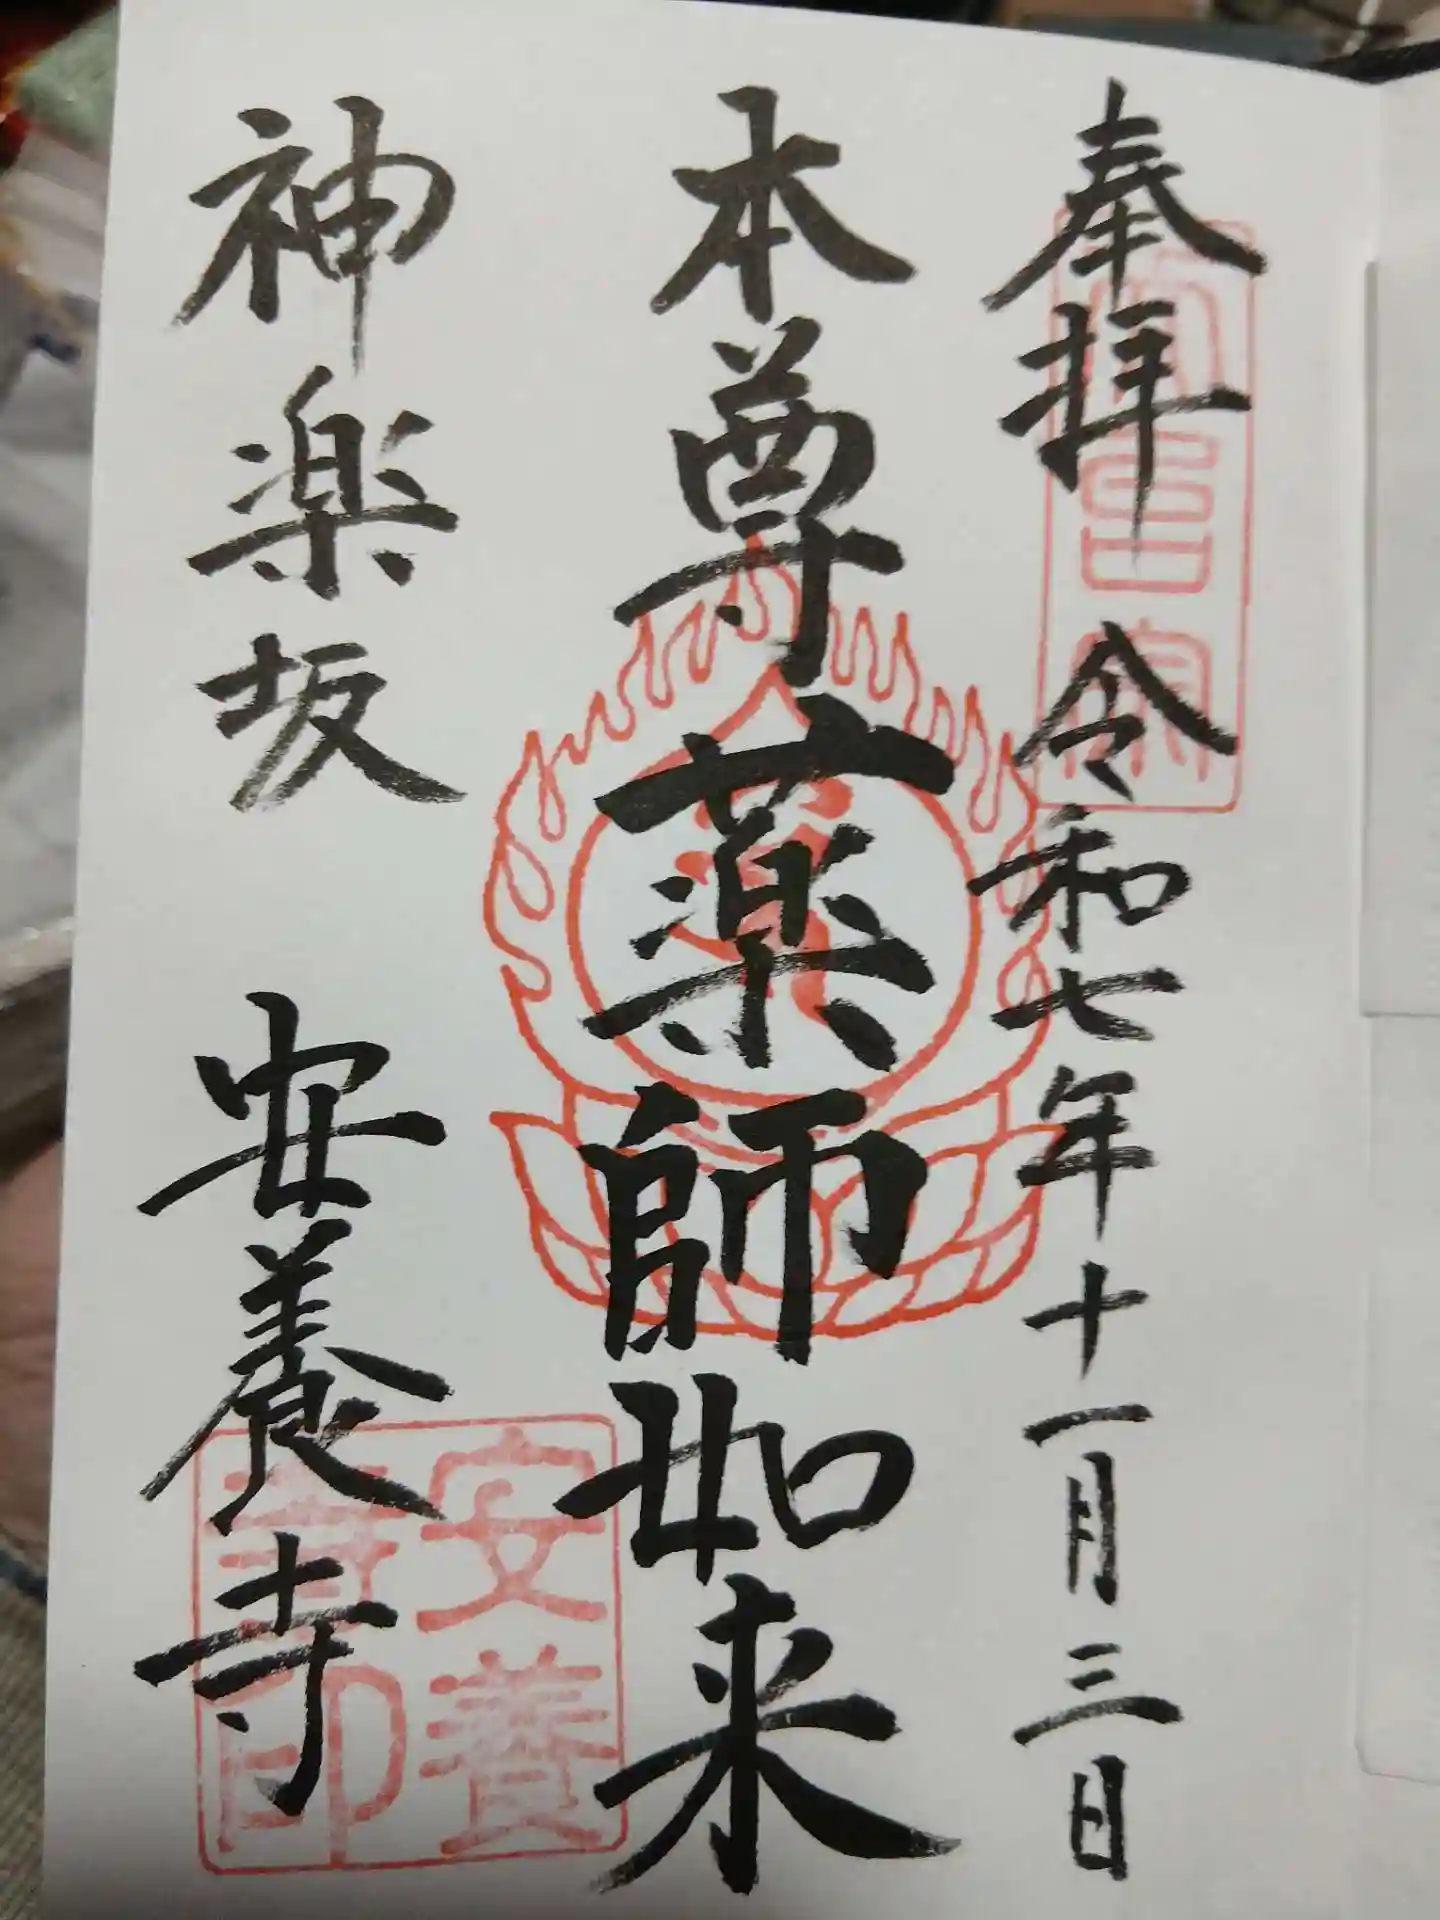 奉拝 令和七年十一月三日
本尊薬師如来
神楽坂 安養寺
安養
寺印